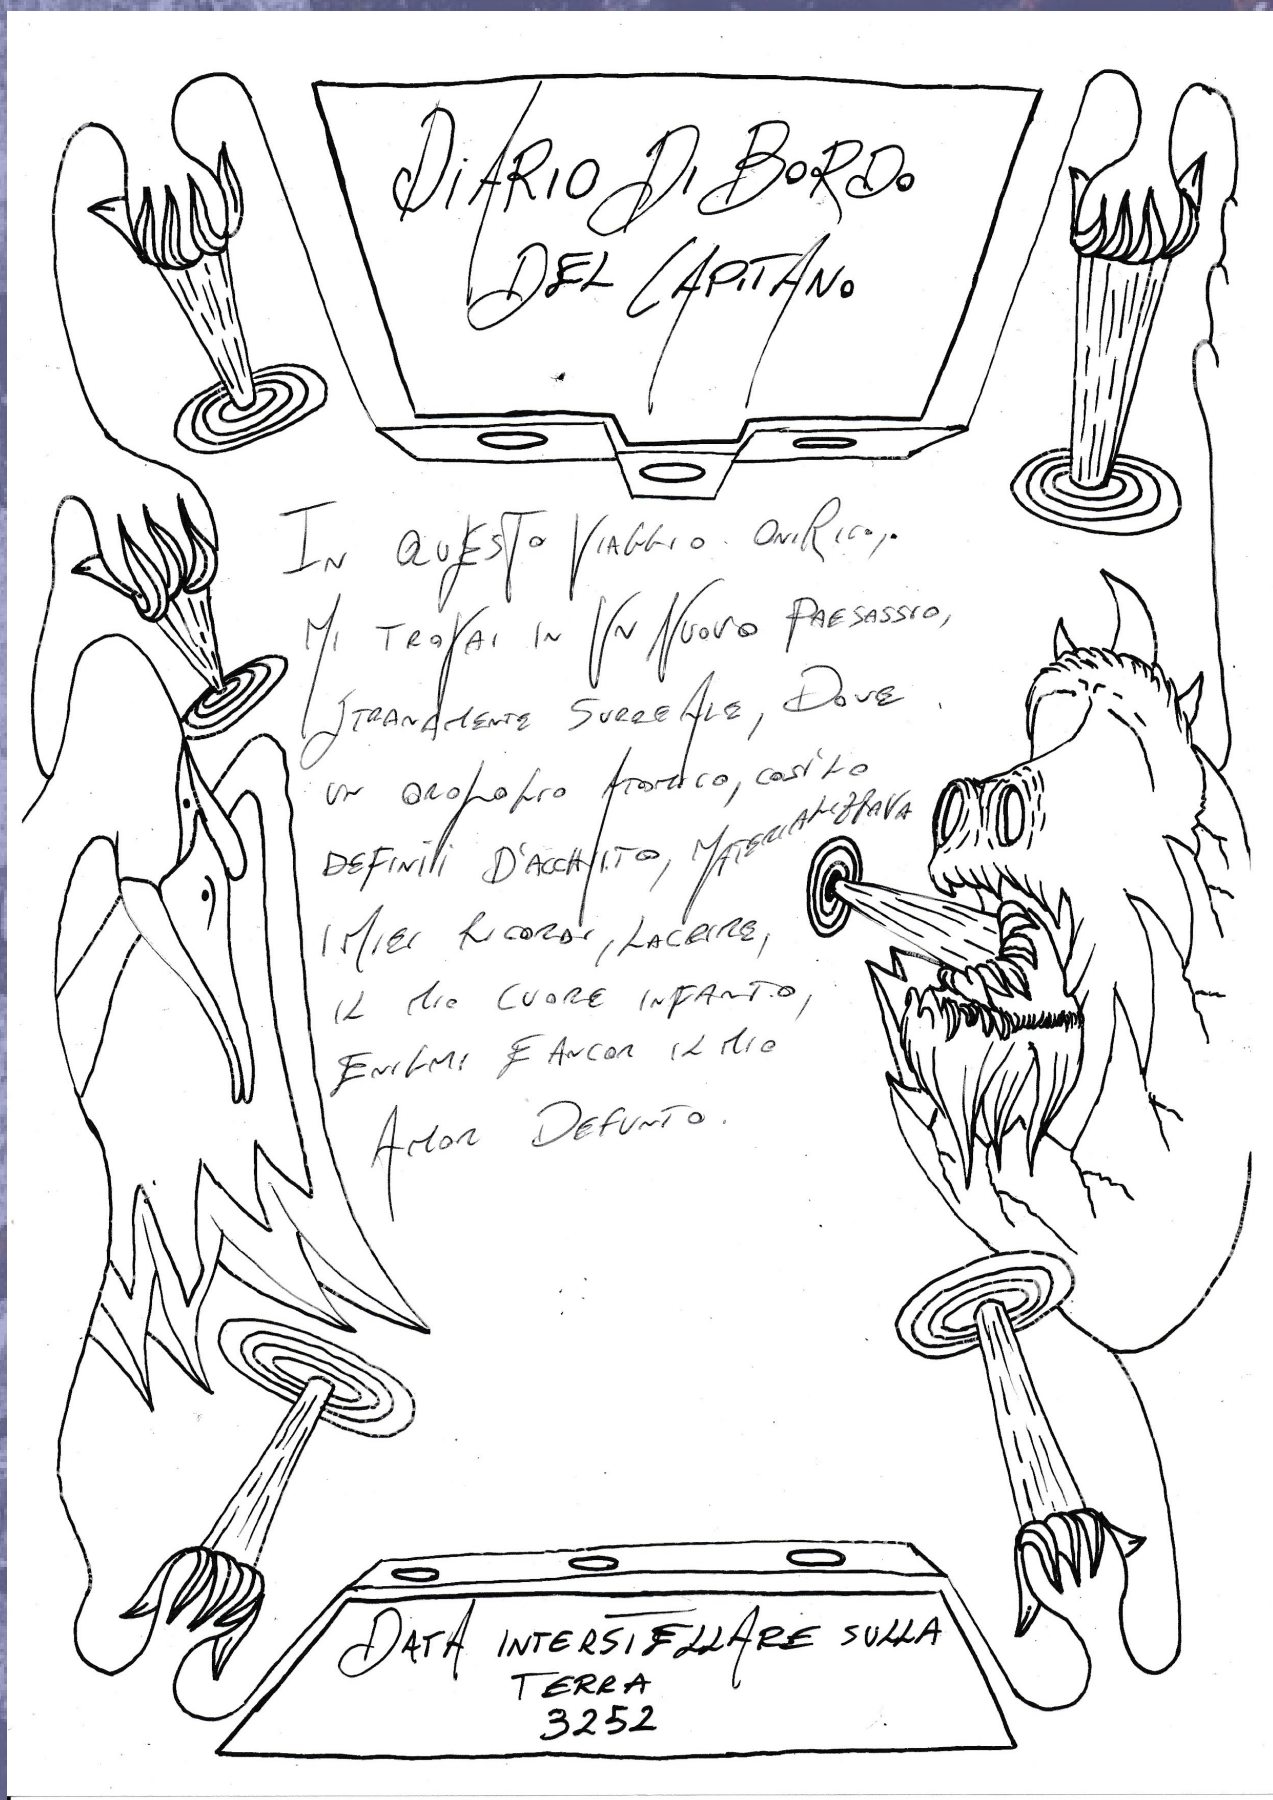 Diario Di Bordo
Del Capitano
In questo viaggio onirico,
mi trovai in un nuovo paesaggio,
stranamente surreale, dove
un orologio atomico, così lo
definii d'acchito, materializzava
i miei ricordi, lacrime,
il mio cuore infanto,
enigmi e ancor il mio
Amor Defunto.
Data interstellare sulla
Terra
3252